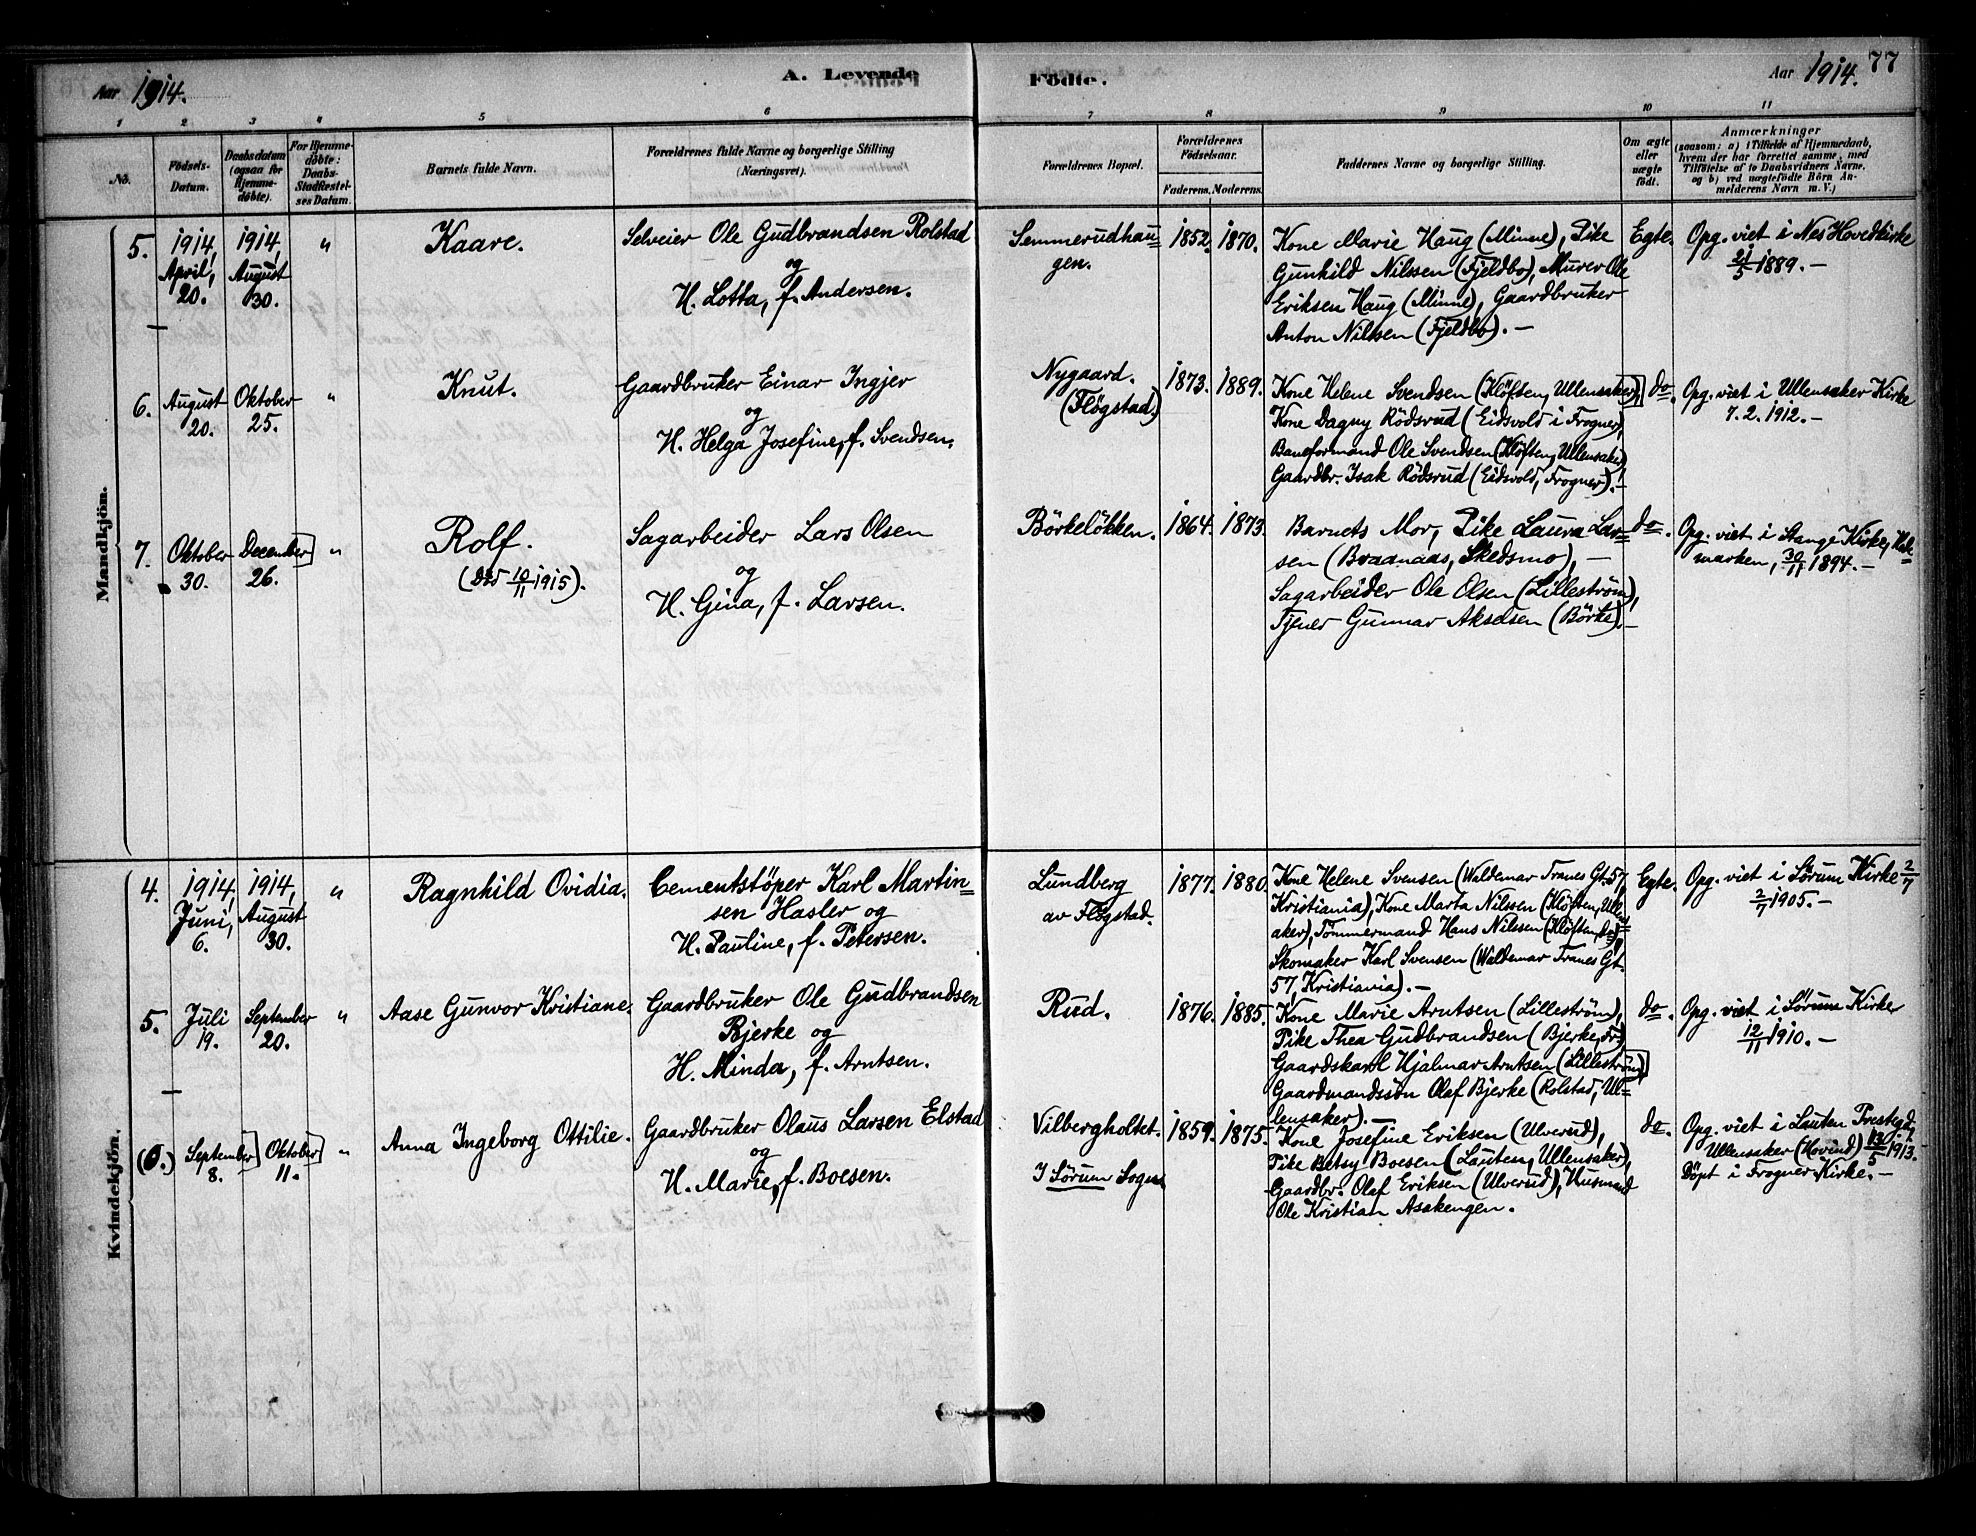 Aar 1914.
A. Levende
Födte.
Aar 1914.
77
1
2
3
4
5
6
7
8
9
10
11
No.
Födsels-
Datum.
Daabsdatum
(ogsaa for
Hjemme-
döbte).
For Hjemme-
döbte:
Daabs-
Stadfæstel-
ses Datum.
Barnets fulde Navn.
Forældrenes fulde Navne og borgerlige Stilling
(Næringsvei).
Forældrenes Bopæl.
Forældrenes
Födselsaar.
Faderens. Moderens.
Faddernes Navne og borgerlige Stilling.
Om ægte
eller
uægte
födt.
Anmærkninger
(saasom: a) i Tilfælde af Hjemmedaab,
hvem der har forrettet samme, med
Tilföielse af to Daabsvidners Navne,
og b) ved uægtefödte Börn An-
melderens Navn m. V.)
Mandkjön.
5.
1914,
April,
20.
1914,
August
30.
"
Kaare.
Selveier Ole Gudbrandsen Rolstad
og
H. Lotta, f. Andersen.
Semmerudhau-
gen.
1852.
1870.
Kone Marie Haug (Minne), Pike
Gunhild Nilssen (Fjeldbo), Murer Ole
Eriksen Haug (Minne), Gaardbruker
Anton Nilssen (Fjeldbo). —
Egte.
Opg. viet i Nes Hovedkirke
21/5 1889. —
6.
August
20.
Oktober
25.
"
Knut.
Gaardbruker Einar Ingjer
og
H. Helga Josefine, f. Svendsen.
Nygaard.
(Flögstad.)
1873.
1889.
Kone Helene Svendsen (Klöften, Ullensaker),
Kone Dagny Rödsrud (Eidsvold i Frogner),
Baneformand Ole Svendsen (Klöften, Ullensaker),
Gaardbr. Isak Rödsrud (Eidsvold, Frogner). —
do.
Opg. viet i Ullensaker Kirke
7. 2. 1912. —
7.
Oktober
30.
December
26.
"
Rolf.
(Död 10/11 1915).
Sagarbeider Lars Olsen
og
H. Gina, f. Larsen.
Börkelökken.
1864.
1873.
Barnets Mor, Pike Laura Lar=
sen (Braanaas, Skedsmo), —
Sagarbeider Ole Olsen (Lilleström),
Tjener Gunnar Akselsen (Börke). —
do.
Opg. viet i Stange Kirke, Hede=
marken, 30/11 1894. —
Kvindekjön.
4.
1914,
Juni,
6.
1914,
August
30.
"
Ragnhild Ovidia.
Cementstöper Karl Martin=
sen Hasler og
H. Pauline, f. Petersen.
Lundberg
av Flögstad.
1877.
1880.
Kone Helene Svensen (Waldemar Tranes Gt. 57,
Kristiania), Kone Marta Nilssen (Klöften, Ullens=
aker), Tömmermand Hans Nilssen (Klöften, do),
Skomaker Karl Svensen (Waldemar Tranes Gt.
57, Kristiania). —
Egte.
Opg. viet i Sörum Kirke 2/7
2/7 1905. —
5.
Juli
19.
September
20.
"
Aase Gunvor Kristiane.
Gaardbruker Ole Gudbrandsen
Bjerke og
H. Minda, f. Arntsen.
Rud.
1876.
1885.
Kone Marie Arntsen (Lilleström),
Pike Thea Gudbrandsen (Bjerke, Fr.)
Gaardskarl Hjalmar Arntsen (Lilleström),
Gaardmandssön Olaf Bjerke (Rolstad, Ul=
lensaker). —
do.
Opg. viet i Sörum Kirke
12/11 1910. —
(0.)
September
8.
Oktober
11.
"
Anna Ingeborg Ottilie.
Gaardbruker Olaus Larsen Elstad
og
H. Marie, f. Boesen.
Vilbergholtet.
I Sörum Sogn
1859.
1875.
Kone Josefine Eriksen (Ulverud),
Pike Betsy Boesen (Lauten, Ullensaker),
Gaardbr. Olaf Eriksen (Ulverud), Husmand
Ole Kristian Asakengen.
do.
Opg. viet i Lauten Prestegd.,
Ullensaker (Hovind) 13/5 1913.
Döpt i Frogner Kirke. —